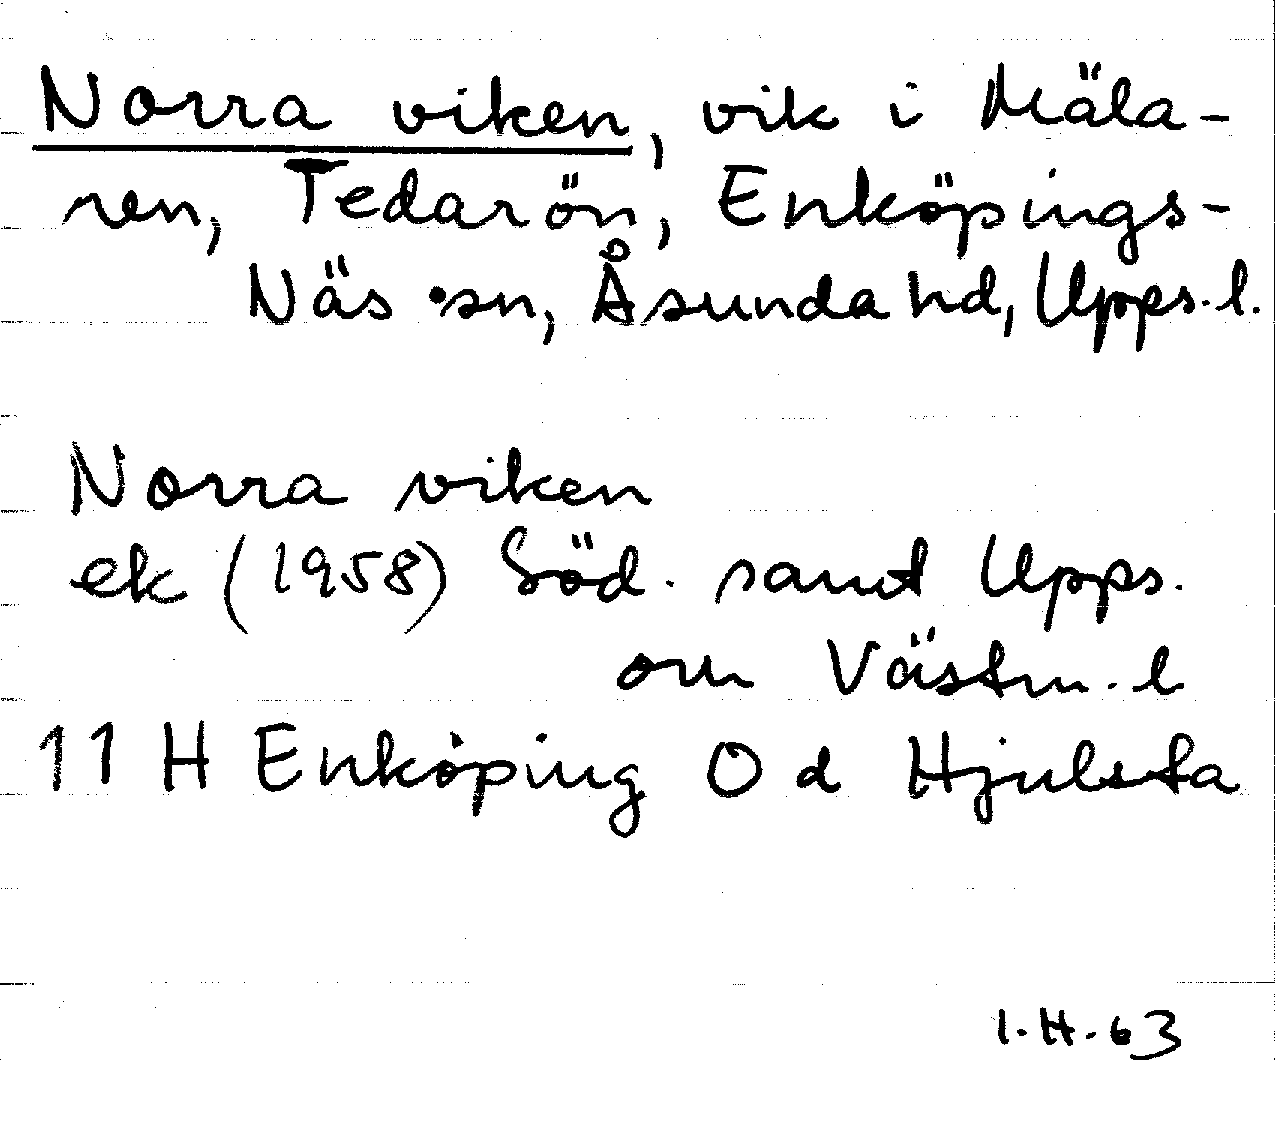 Norra viken, vik i Mäla-
ren, Tedarön, Enköpings-
Näs sn, Åsunda hd, Upps. l.
Norra viken
ek (1958) Söd. samt Upps.
om Västm. l
11 H Enköping O d Hjulsta
I.H.63